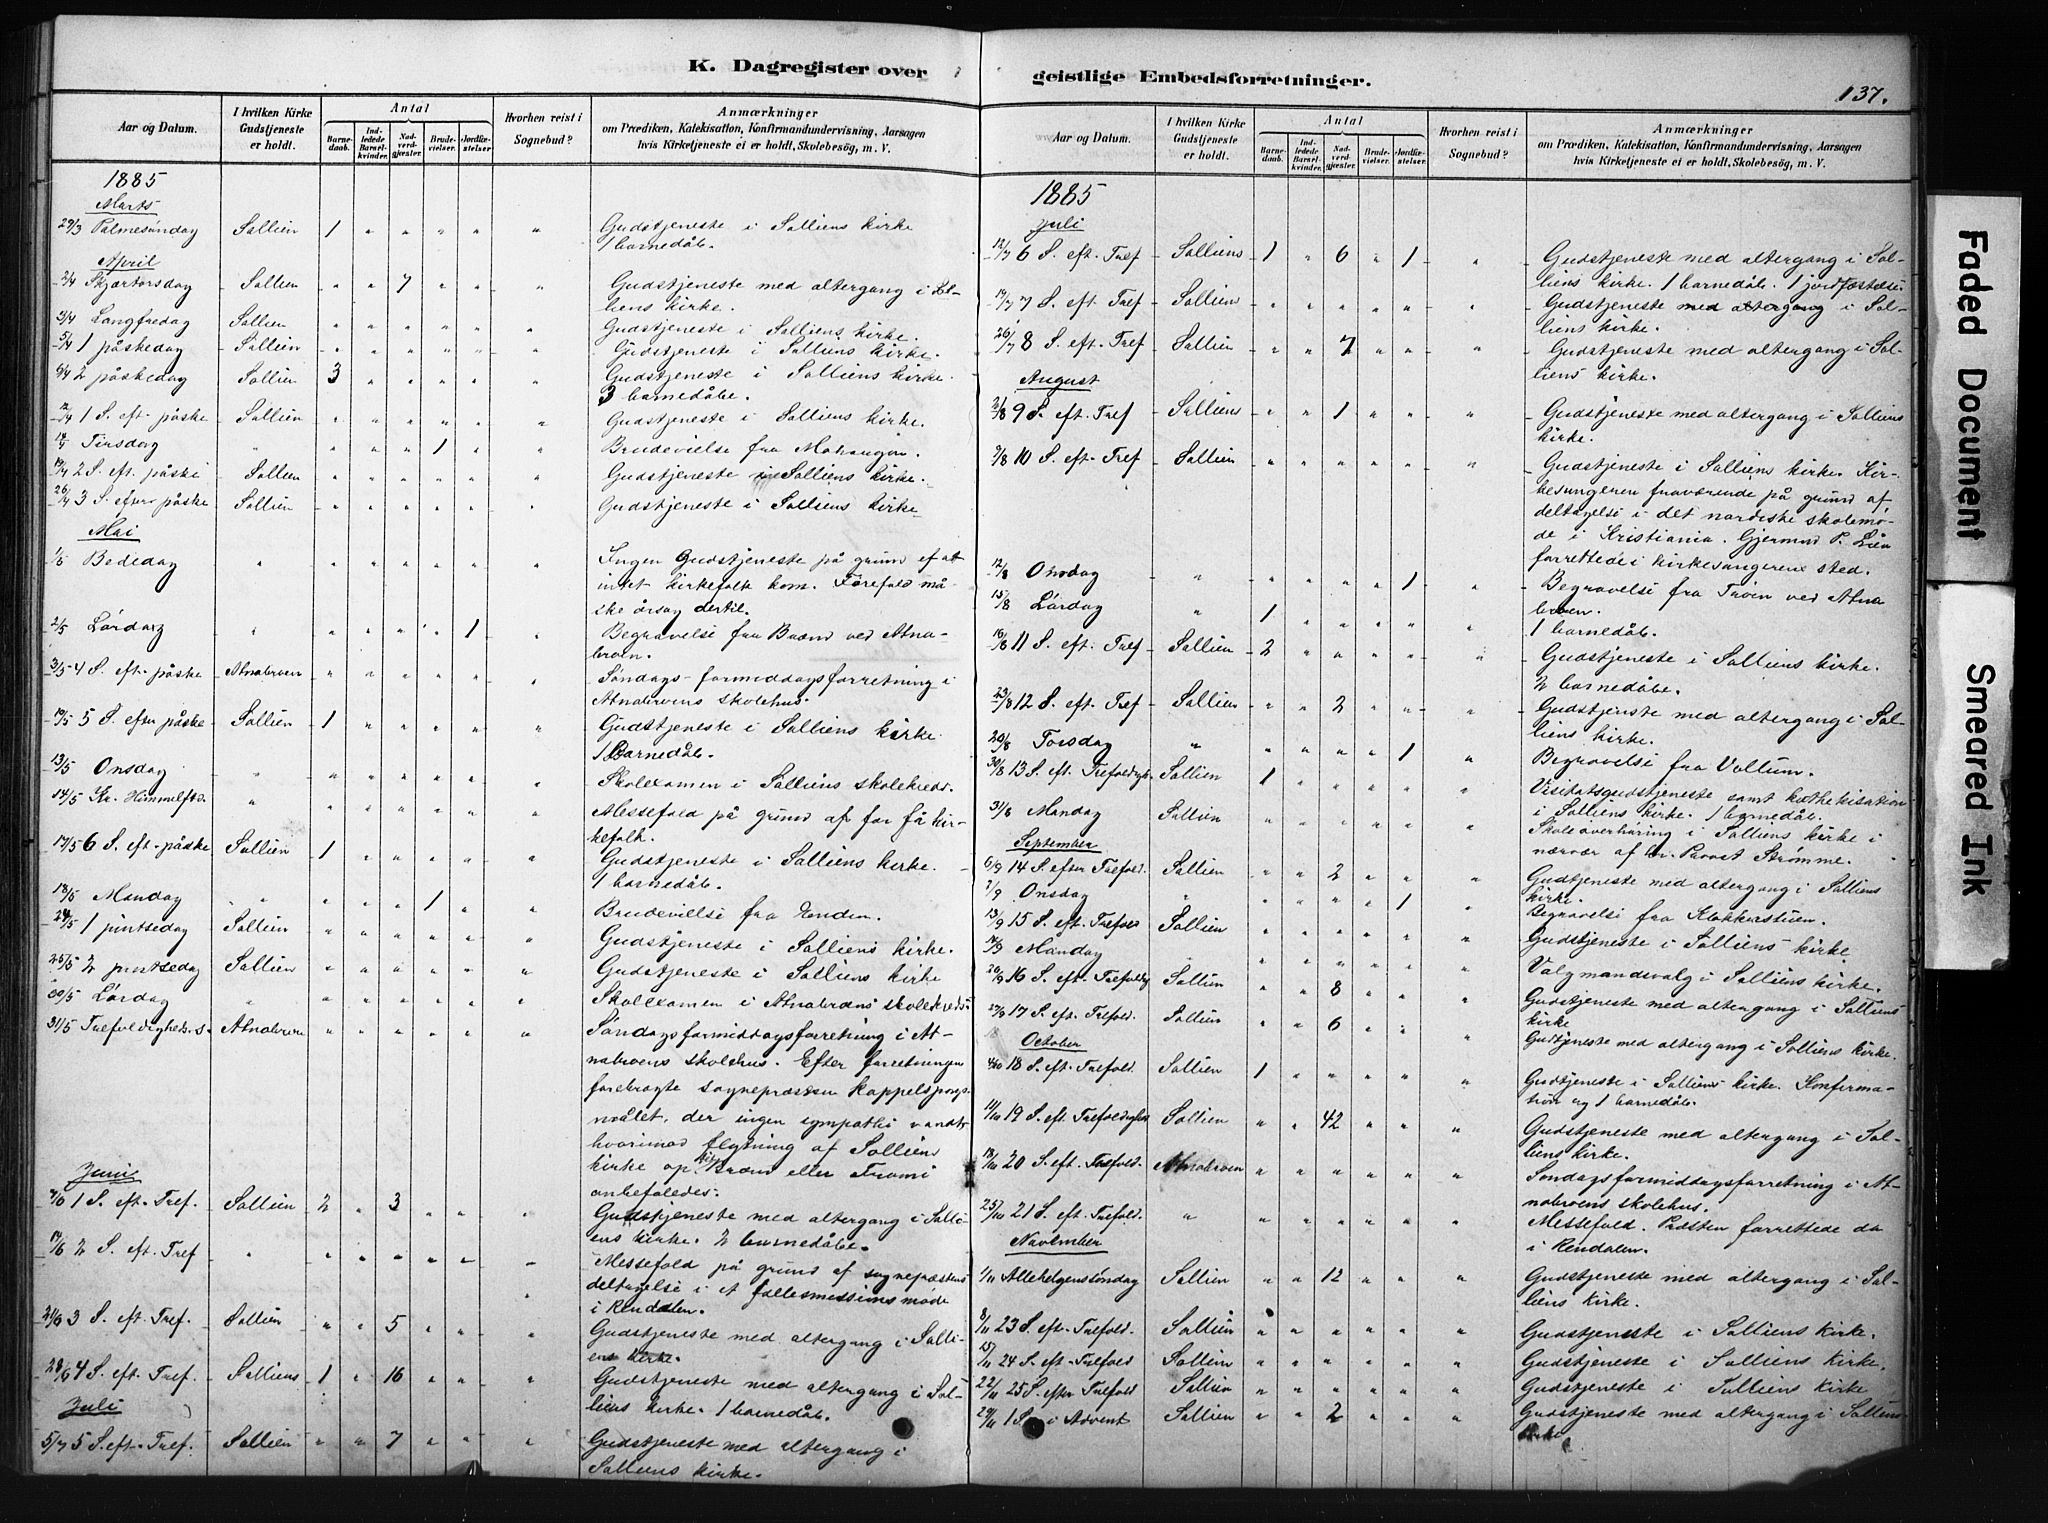 K. Dagregister over
Aar og Datum. I hvilken Kirke Gudstjeneste er holdt. Antal Barnedaab. Indledede Barselkvinder. Nadverdgjester. Brudevielser. Jordfæstelser. Hvorhen reist i Sognebud? Anmærkninger om Prædiken, Katekisation, Konfirmandundervisning, Aarsagen hvis Kirketjeneste ei er holdt, Skolebesög, m. V.
1885
Marts
29/3 Palmesøndag Sollien 1 " " " " " Gudstjeneste i Solliens kirke
1 barnedåb.
April
2/4 Skjærtorsdag Sollien " " 7 " " " Gudstjeneste med altergang i Sol-
liens kirke.
3/4 Langfredag Sollien " " " " " " Gudstjeneste i Solliens kirke.
5/4 1 påskedag Sollien " " " " " " Gudstjeneste i Solliens kirke.
6/4 2 påskedag Sollien 3 " " " " " Gudstjeneste i Solliens kirke.
3 barnedåbe.
12/4 1 S. eft. påske Sollien " " " " " " Gudstjeneste i Solliens kirke.
14/4 Tirsdag " " " " 1 " " Brudevielse fra
19/4 2 S. eft. påske Sollien " " " " " " Gudstjeneste i Solliens kirke.
26/4 3 S. efter påske Sollien " " " " " " Gudstjeneste i Solliens kirke
Mai
1/5 Bededag " " " " " " " Ingen Gudstjeneste på grund af at
intet kirkefolk kom. Førefald må-
ske årsag dertil.
2/5 Lørdag " " " " " 1 " Begravelse fra ved Atna-
broen.
3/5 4 S. eft. påske Atnabroen " " " " " " Søndags-formiddagsforretning i
Atnabroens skolehus.
10/5 5 S. efter påske Sollien 1 " " " " " Gudstjeneste i Solliens kirke.
1 Barnedåb.
13/5 Onsdag " " " " " " " Skolexamen i Solliens skolekreds.
14/5 Kr. Himmelftsd. " " " " " " " Messefald på grund af for få kir-
kefolk.
17/5 6 S. eft. påske Sollien 1 " " " " " Gudstjeneste i Solliens kirke.
1 barnedåb.
18/5 Mandag " " " " 1 " " Brudevielse fra Enden.
24/5 1 pintsedag Sollien " " " " " " Gudstjeneste i Solliens kirke.
25/5 2 pintsedag Sollien " " " " " " Gudstjeneste i Solliens kirke
30/5 Lørdag " " " " " " " Skolexamen i Atnabroens skolekreds.
31/5 Trefoldigheds.s. Atnabroen " " " " " " Søndagsformiddagsforretning i At-
nabroens skolehus. Efter forretningen
forebragte sognepræsten kappelspørgs-
målet, der ingen sympathi vandt
hvorimod flytning af Sollien
kirke op til eller
anbefaledes.
Juni
7/6 1 S. eft. Tref. Sollien 2 " 3 " " " Gudstjeneste med altergang i Solli-
ens kirke. 2 barnedåbe.
14/6 2 S. eft. Tref " " " " " " " Messefald på grund af sognepræstens
deltagelse i et fællesmissionsmøde
i Rendalen.
21/6 3 S. eft. Tref. Sollien " " 5 " " " Gudstjeneste med altergang i Solli-
ens kirke.
28/6 4 S. eft. Tref. Solliens 1 " 16 " " " Gudstjeneste med altergang i Sol-
liens kirke. 1 barnedåb.
Juli
5/7 5 S. eft. Tref. Sollien " " 7 " " " Gudstjeneste med altergang i
Solliens kirke.
geistlige Embedsforretninger.
137.
Aar og Datum. I hvilken Kirke Gudstjeneste er holdt. Antal Barnedaab. Indledede Barselkvinder. Nadverdgjester. Brudevielser. Jordfæstelser. Hvorhen reist i Sognebud? Anmærkninger om Prædiken, Katekisation, Konfirmandundervisning, Aarsagen hvis Kirketjeneste ei er holdt, Skolebesög, m. V.
1885
Juli
12/7 6 S. eft. Tref Solliens 1 " 6 " 1 " Gudstjeneste med altergang i Sol-
liens kirke. 1 barnedåb. 1 jordfæstelse
19/7 7 S. eft. Tref Sollien " " " " " " Gudstjeneste med altergang i Sol-
liens kirke.
26/7 8 S. eft. Tref Sollien " " 7 " " " Gudstjeneste med altergang i Sol-
liens kirke.
August
2/8 9 S. eft. Tref Solliens " " 1 " " " Gudstjeneste med altergang i Solliens
kirke.
9/8 10 S. eft. Tref Sollien " " " " " " Gudstjeneste i Solliens kirke. Kir-
kesangeren fraværende på grund af
deltagelse i det nordiske skolemø-
de i Kristiania. Gjermund P. Lien
forrettede i kirkesangerens sted.
12/8 Onsdag " " " " " 1 " Begravelse fra ved Atna
broen.
15/8 Lørdag " 1 " " " " " 1 barnedåb.
16/8 11 S. eft. Tref Sollien 2 " " " " " Gudstjeneste i Solliens kirke.
2 barnedåbe.
23/8 12 S. eft. Tref Sollien " " 2 " " " Gudstjenste med altergang i Sol-
liens kirke.
20/8 Torsdag " " " " " 1 " Begravelse fra Vollum.
30/8 13 S. eft. Trefoldigh. Sollien 1 " " " " " Visitatsgudstjeneste samt kathekisation
i Solliens kirke. 1 barnedåb.
31/8 Mandag Sollien " " " " " " Skoleoverhøring i Solliens kirke i
nærvær af hr. Provst Strømme.
September
6/9 14 S. efter Trefold. Sollien " " 2 " " " Gudtjeneste med altergang i Solliens
kirke.
Onsdag " " " " " 1 " Begravelse fra Klokkerstuen.
13/9 15 S. eft. Trefold Sollien " " " " " " Gudstjeneste i Solliens kirke
Mandag " " " " " " Valgmandsvalg i Solliens kirke.
20/9 16 S. eft. Trefoldig Sollien " " 8 " " " Gudstjeneste med altergang i Solliens
kirke
27/9 17 S. eft. Trefold. Sollien " " 6 " " " Gudtjeneste med altergang i Solliens kirke.
October
4/10 18 S. eft. Trefold. Sollien 1 " " " " " Gudtjeneste i Solliens kirke. Konfirma-
tion og 1 barnedåb.
11/10 19 S. eft. Trefoldighed Sollien " " 42 " " " Gudstjeneste med altergang i Sol-
liens kirke.
18/10 20 S. eft. Trefold. Atnabroen " " " " " " Søndagsformiddagsforretning i At-
nabroens skolehus.
25/10 21 S. eft. Trefold. " " " " " " " Messefald. Præsten forrettede da
i Rendalen.
November
1/11 Allehelgensøndag Sollien " " 12 " " " Gudstjeneste med altergang i Sol-
liens kirke.
8/11 23 S. eft. Trefold. Sollien " " " " " " Gudstjeneste i Solliens kirke.
15/11 24 S. eft. Trefold Sollien " " " " " " Gudstjeneste i Solliens kirke.
22/11 25 S. efter Trefold Sollien " " " " " " Gudstjeneste i Solliens kirke
29/11 1 S. i Advent Sollien " " 2 " " " Gudstjeneste med altergang i Solliens
kirke
Faded Document
Smeared Ink